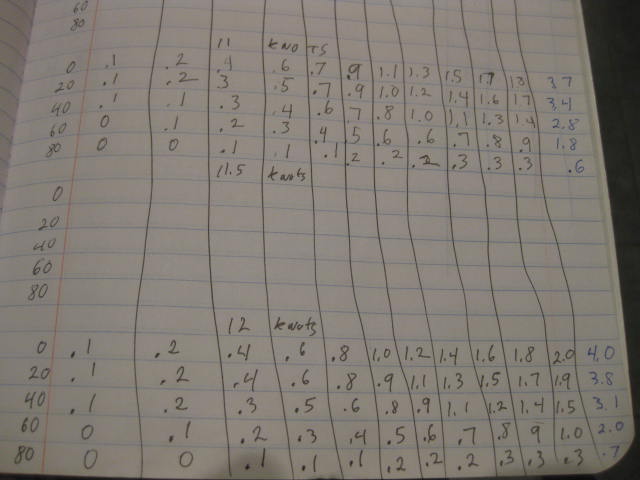 60
80
11 knots
0 .1 .2 .4 .6 .7 .9 1.1 1.3 1.5 1.7 1.8 3.7
20 .1 .2 .3 .5 .7 .9 1.0 1.2 1.4 1.6 1.7 3.4
40 .1 .1 .3 .4 .6 .7 .8 1.0 1.1 1.3 1.4 2.8
60 0 .1 .2 .3 .4 .5 .6 .6 .7 .8 .9 1.8
80 0 0 .1 .1 .1 .2 .2 .2 .3 .3 .3 .6
11.5 knots
0
20
40
60
80
12 knots
0 .1 .2 .4 .6 .8 1.0 1.2 1.4 1.6 1.8 2.0 4.0
20 .1 .2 .4 .6 .8 .9 1.1 1.3 1.5 1.7 1.9 3.8
40 .1 .2 .3 .5 .6 .8 .9 1.1 1.2 1.4 1.5 3.1
60 0 .1 .2 .3 .4 .5 .6 .7 .8 .9 1.0 2.0
80 0 0 .1 .1 .1 .2 .2 .2 .3 .3 .3 .7